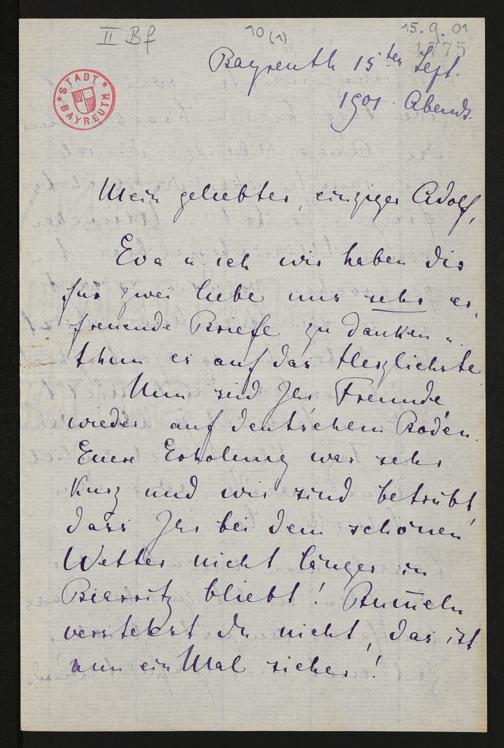 II Bf
10 (1)
15.9.01
1775
STADT BAYREUTH
Bayreuth 15ten Sept.
1901. Abends.
Mein geliebter, einziger Adolf,
Eva u ich wir haben dir
für zwei liebe uns sehr er-
freuende Briefe zu danken u.
thun es auf das Herzlichste
Nun sind Ihr Freunde
wieder auf deutschem Boden.
Euere Erholung war sehr
kurz und wir sind betrübt,
dass Ihr bei dem schönen
Wetter nicht länger in
Biarritz bliebt! Bummeln
verstehst du nicht, das ist
nun ein Mal sicher!